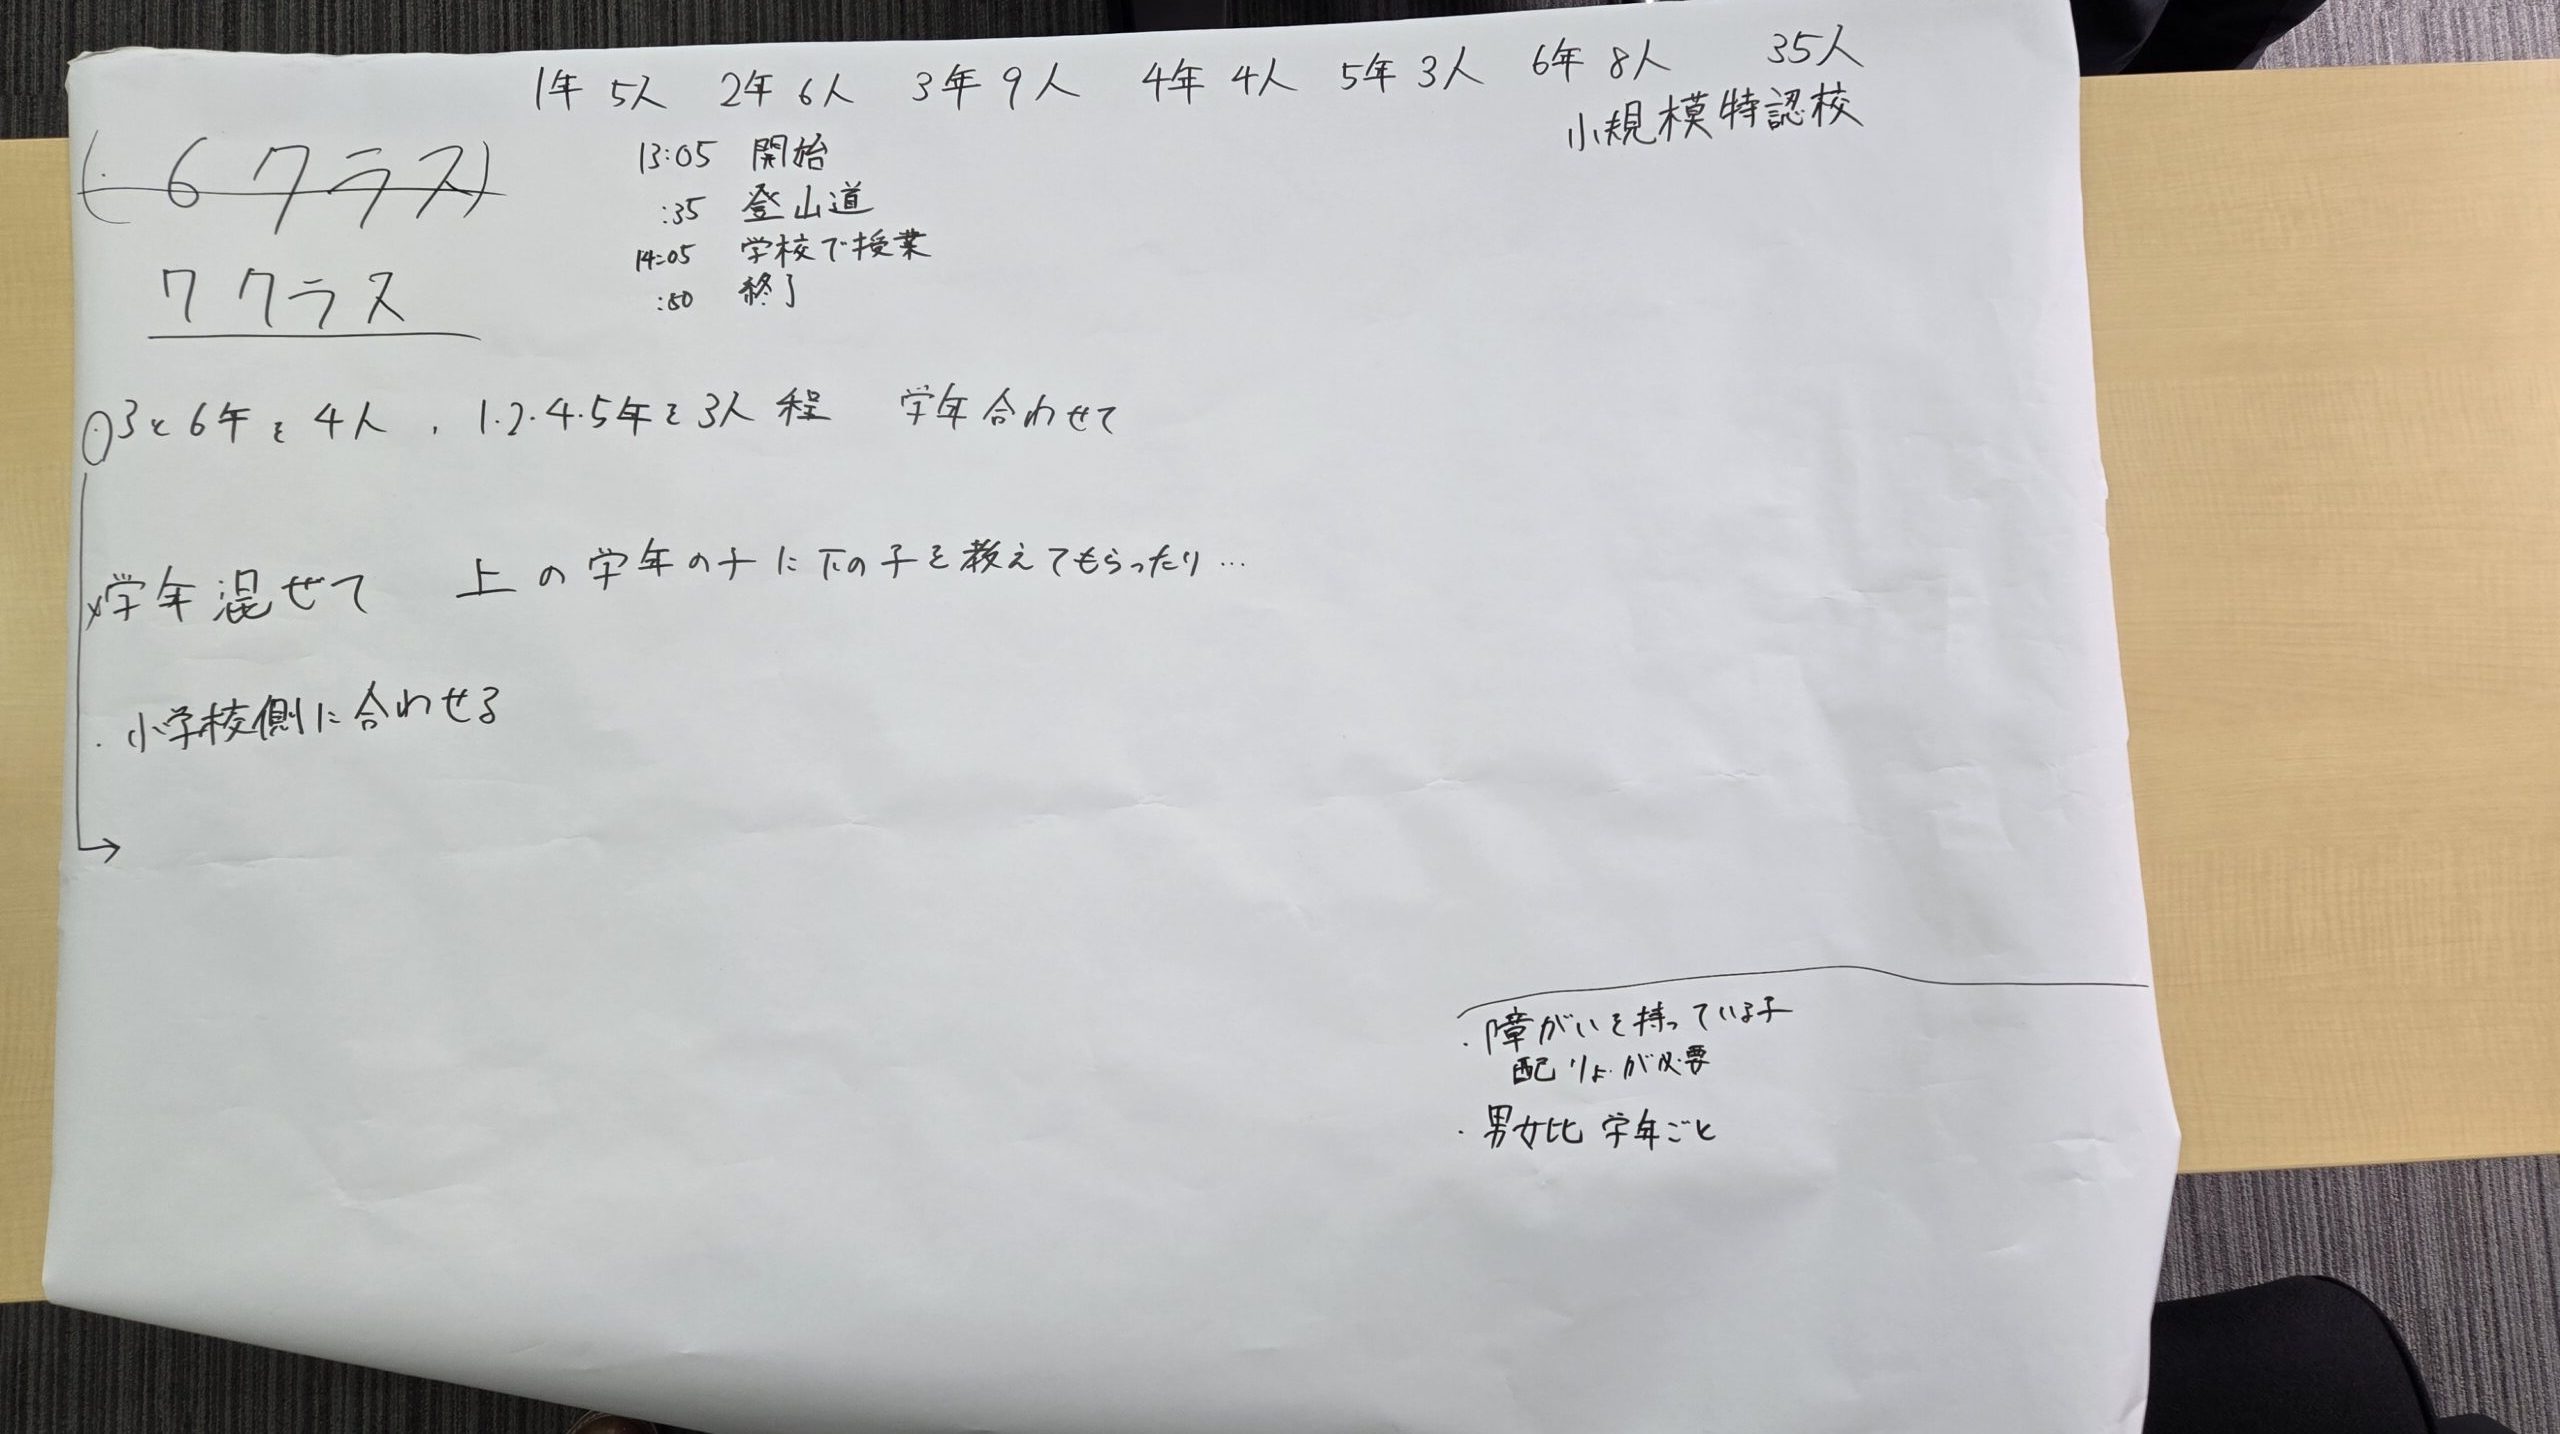 1年 5人 2年 6人 3年 9人 4年 4人 5年 3人 6年 8人 35人
小規模特認校
(・6クラス)
7クラス
13:05 開始
:35 登山道
14:05 学校で授業
:50 終了
○3と6年を4人、1.2.4.5年を3人程 学年合わせて
×学年混ぜて 上の学年の子に下の子を教えてもらったり…
・小学校側に合わせる
・障がいを持っている子
配りょが必要
・男女比 学年ごと